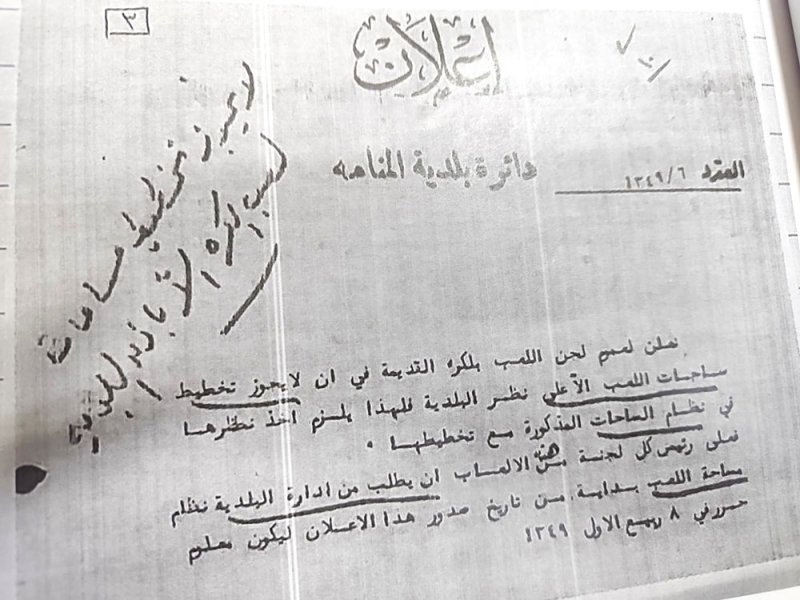 ٣
إعلان
دائرة بلدية المنامه
العدد ١٣٤٩/٦
لا يجوز تخطيط ساحات
لعب الكرة الا باذن البلدية
نعلن لعموم لجن اللعب بلكره القديمة في ان لايجوز تخطيط
ساحات اللعب الاعلى نظر البلدية فلهذا يلزم اخذ نظرها
في نظام الساحات المذكورة مع تخطيطها .
فعلى رئيس كل لجنة من هذه الالعاب ان يطلب من ادارة البلدية نظام
ساحة اللعب بداية من تاريخ صدور هذا الاعلان ليكون معلوم
حرر في ٨ ربيع الاول ١٣٤٩